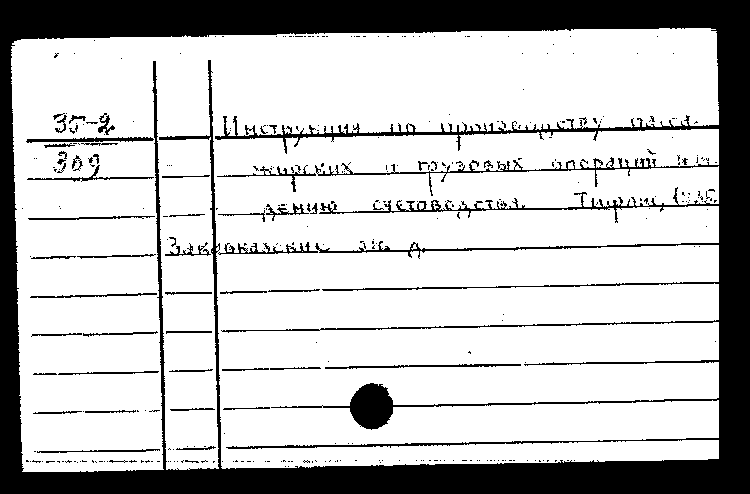 35-2
309
Инструкция по производству пасса-
жирских и грузовых операций и ве-
дению счетоводства. Тифлис,
Закавказские ж. д.